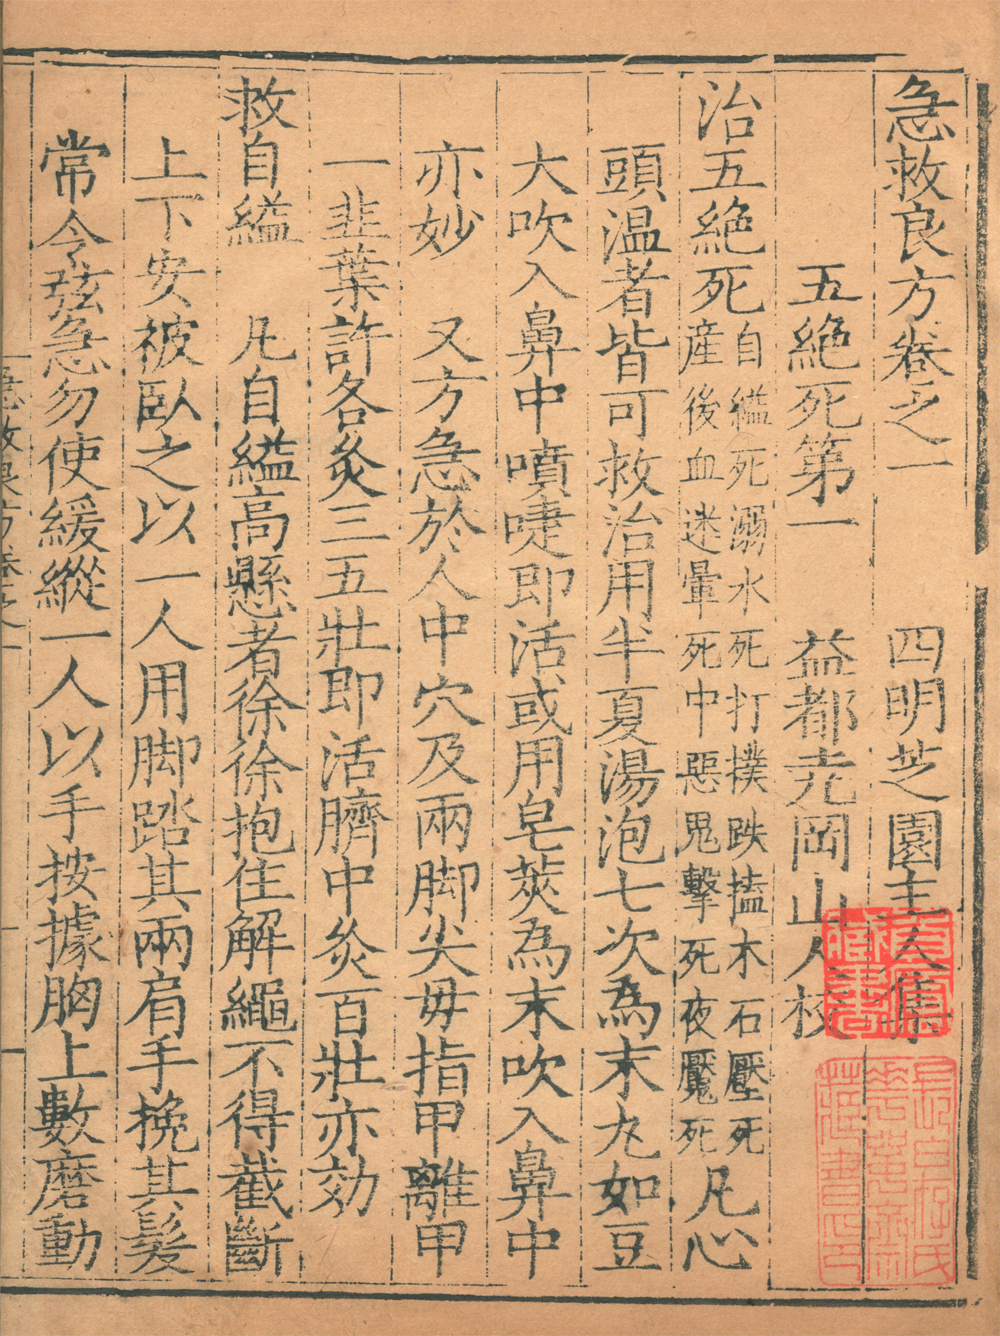 急救良方卷之一　四明芝園主人集
五絶死第一　益都尭岡山人校
治五絶死自縊死溺水死打撲跌搕木石壓死産後血迷暈死中惡鬼擊死夜魘死凡心
頭温者皆可救治用半夏湯泡七次為末丸如豆
大吹入鼻中噴嚏即活或用皂莢為末吹入鼻中
亦妙　又方急於人中穴及兩脚尖毋指甲離甲
一韭葉許各灸三五壯即活臍中灸百壯亦効
救自縊　凡自縊高懸者徐徐抱住解繩不得截斷
上下安被臥之以一人用脚踏其兩肩手挽其髮
常令弦急勿使緩縱一人以手按據胸上數磨動
急救良方卷之一
藏書
長白
氏
藏書印